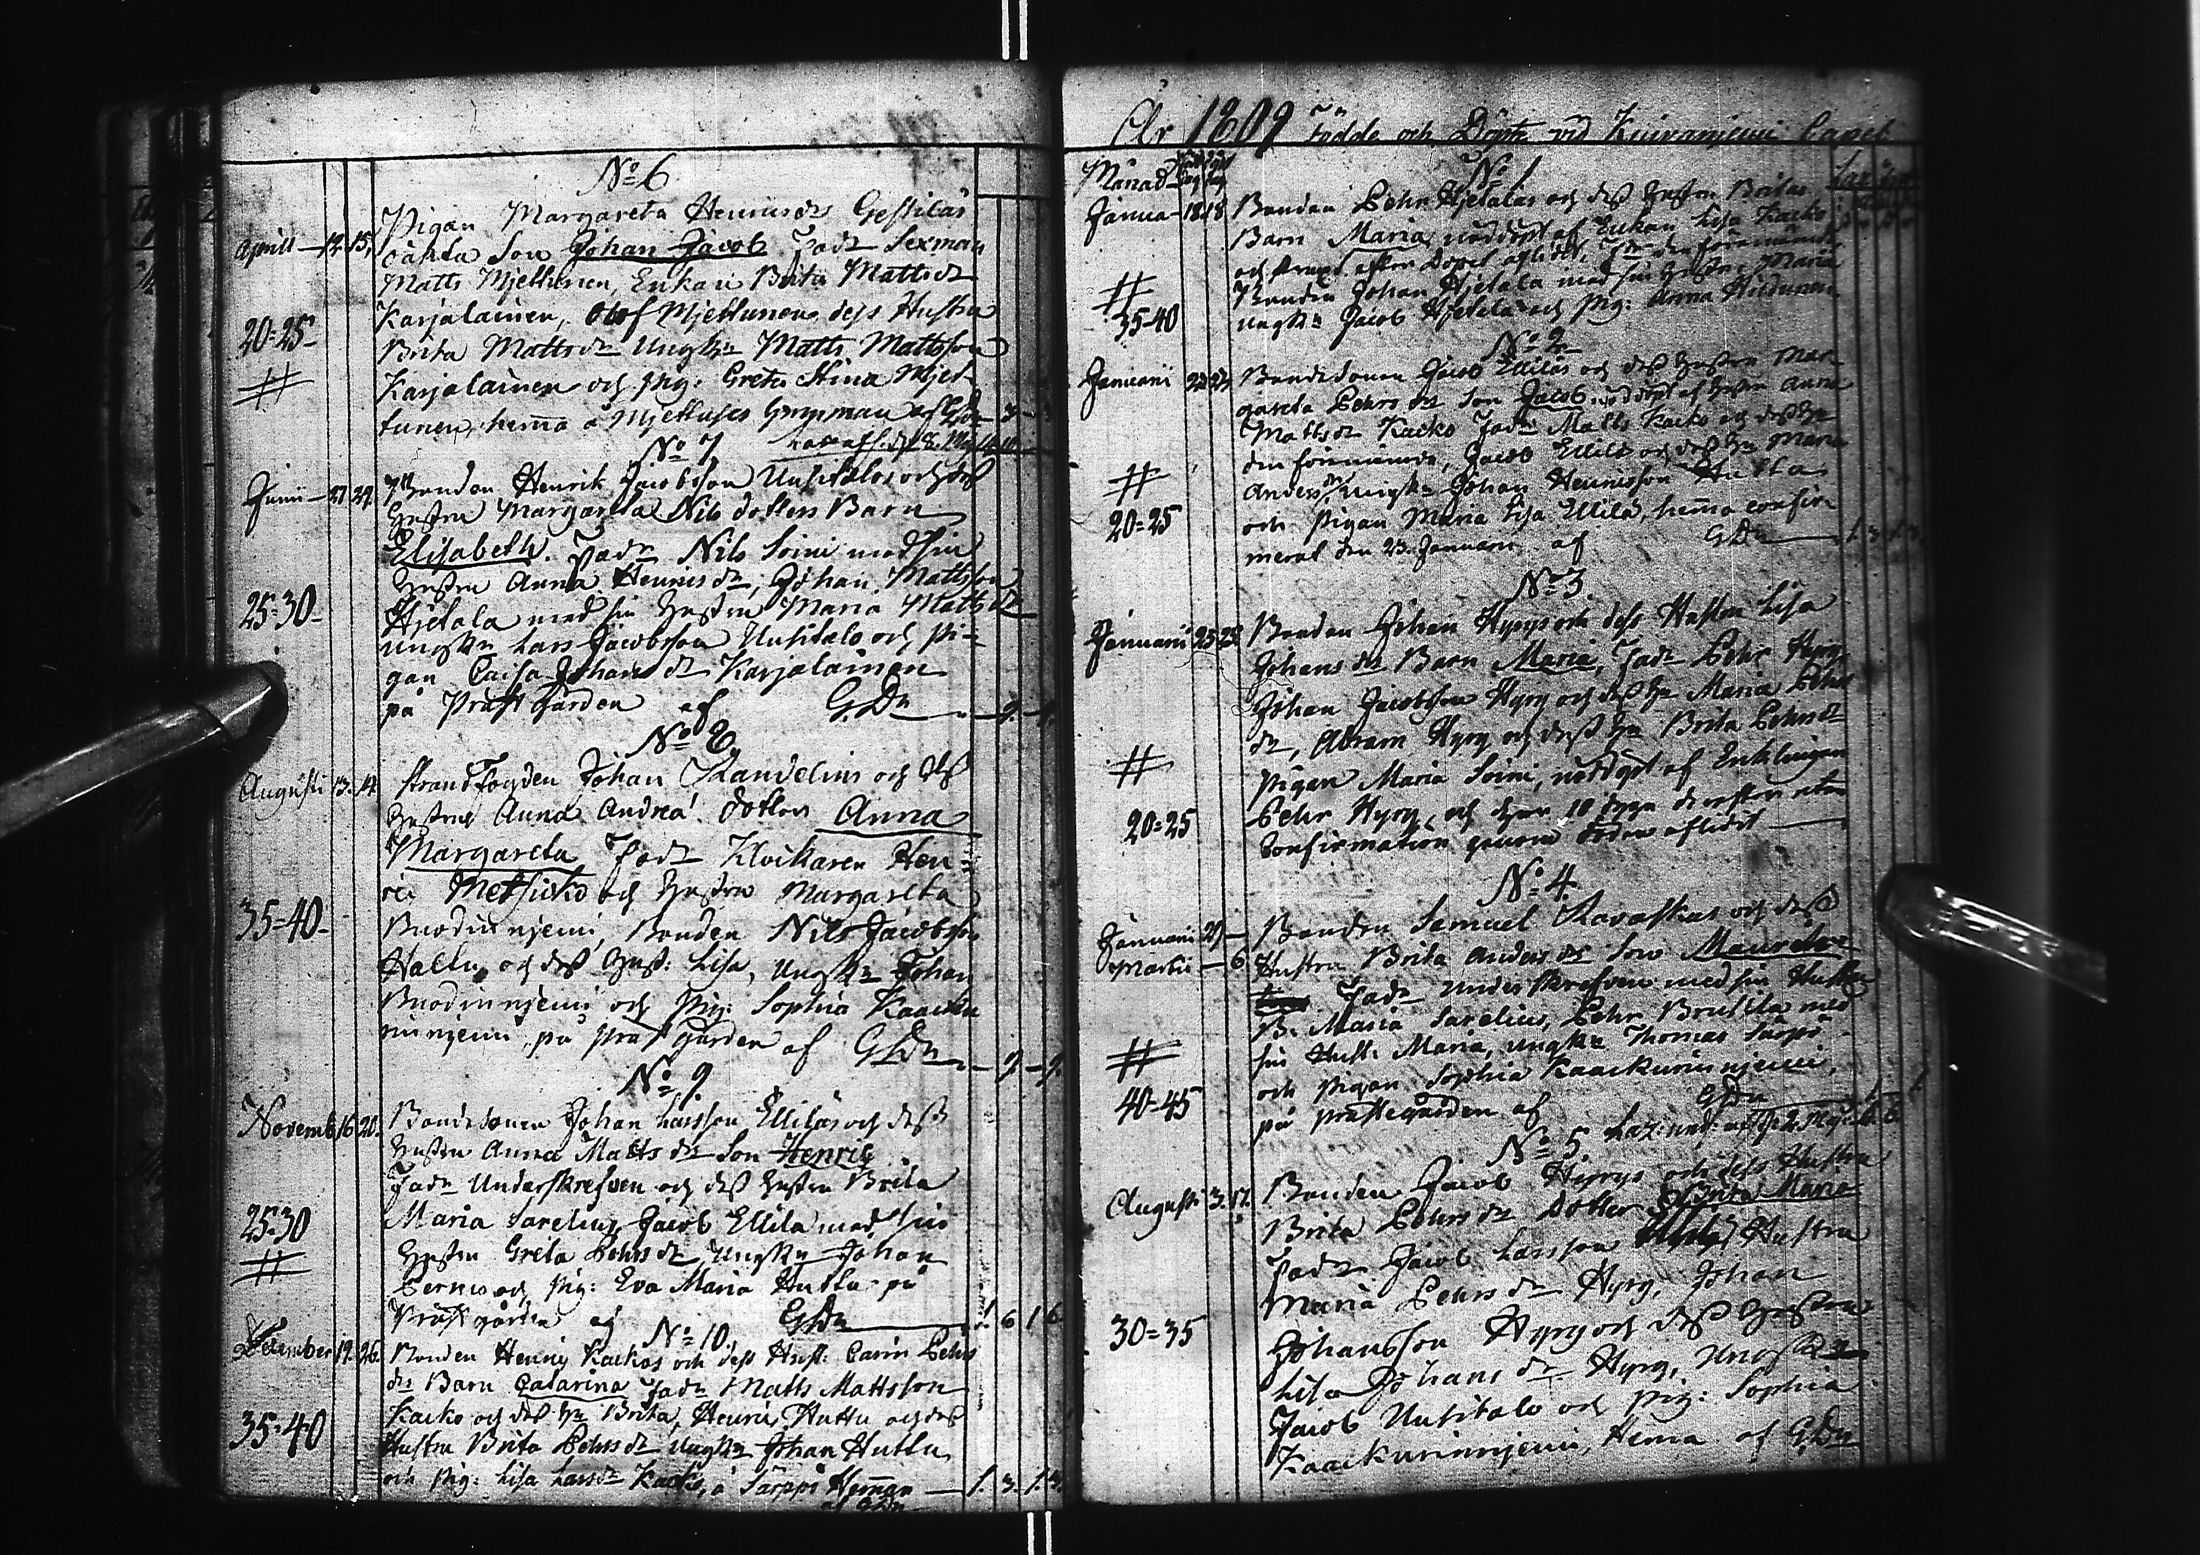 No 6
Pigan Margareta Henricsdr Gestiläs
Aprill 12 15 oäkta Son Johan Jacob Fadr Sexman
Matts Mjettunen, Enkan Brita Mattsdr
20=25 Karjalainen, Olof Mjettunen, dess Hustru
Brita Mattsdr Ungkn Matts Mattsson
# Karjalainen och pig: Greta Stina Mjet-
tunen, hema å Mjettuses af GDn
No 7
Junii 27 27 Bonden Henrik Jacobsson Uusitalos och dess
Hustru Margareta Nils dotters Barn
Elisabeth. Fadr Nils Soini med sin
Hustru Anna Henricsdr, Johan Mattsson
25=30 Hietala med sin Hustru Maria Mattsdr
ungkn Lars Jacobsson Uusitalo och pi-
gan Caisa Johansdr Karjalainen
på Prästgården af GDn 9
No 8
Augusti 13 14 Strand Fogden Johan Randelius och dess
Hustrus Anna Andreæ dotter Anna
Margareta Fadr Klockaren Hen-
ric Metsicko och Hustru Margareta
35=40 Buodinnjemi, Bonden Nils Jacobsson
Hallu, och dess Hust: Lisa, Ungkn Johan
Buodinnjemi och Pig: Sophia Kaacku
rinnjemi, på Prästgården af GDn 9 9
No 9
Novemb 16 20 Bondesonen Johan Larsson Ellilas och dess
Hustru Anna Mattsdr Son Henric
Fadr Underskrefven och dess Hustru Brita
25=30 Maria Sarelius, Jacob Ellilä med sin
Hustru Greta Pehrsdr, Ungkn Johan
# Pernu och Pig: Eva Maria Huttu på
Prästgården af GDn 1 6 1 6
No 10
December 19 26 Bonden Henric Kackos och dess Hust: Carin Pehrs
dr Barn Catarina Fadr Matts Mattsson
Kacko och dess Hu Brita, Henric Huttu och dess
35=40 Hustru Brita Pehrsdr Ungkn Johan Huttu
och pig: Lisa Larsdr Kacko, å Särppi Heman 1. 3. 1. 3.
af GDn
År 1809 Födde och Döpte vid Kuivanjemi Capel
Månad
No 1
Janua 18 18 Bonden Pehr Hjetalas och dess Hustru Britas
Barn Maria, nöddöpt af Enkan Lisa Kacko
och strax efter Döpet aflidet,
# Bonden Johan Hjetala med sin Hustru Maria
35=40 Ungkn Jacob Hjetala och Pig: Anna
No 2
Januarii 22 23 Bondesonen Jacob Ellilas och dess Hustru Mar-
gareta Pehrsdr Son Jacob nöddöpt af Hustru Anna
Mattsdr Kacko Fadr Matts Kacko och dess Hu
den förenämnde, Jacob Ellilä och dess Hu Maria
# Andersdr Ungkn Johan Henricsson Huttu
20=25 och Pigan Maria Lisa Ellilä, hema confir-
merat den 23 Januarii af GDn 1. 3. 1. 3.
No 3
Januarii 25 25 Bonden Johan Hyrys och dess Hustru Lisa
Johansdr Barn Maria, Fadr Pehr Hyry,
Johan Jacobsson Hyry och dess Hu Maria Pehrs
dr, Abram Hyry och dess Hu Brita Pehrsdr
# Pigan Maria Soini, nöddöpt af Enklingen
20=25 Pehr Hyry, och 10 dygn derefter utan
Confirmation genom döden aflidit
No 4
Januarii 29 Bonden Samuel Ravaskas och dess
Martii 6 Hustru Brita Andersdr Son
Fadr Underskrefven med sin Hustru
B: Maria Sarelius, Pehr Brusila med
# sin Hust: Maria, Ungkn Thomas Särpi
och Pigan Sophia Kaackurinnjemi,
40=45 på prästegården af GDn
No 5
Augusti 3 17 Bonden Jacob Hyrys och dess Hustru
Brita Pehrsdr Dotter Brita Maria
Fadr Jacob Larsson Hustru
Maria Pehrsdr Hyry, Johan
30=35 Johansson Hyry och dess Hustru
Lisa Johansdr Hyry, Ungkn
Jacob Uusitalo och pig: Sophia
Kaackurinnjemi, Hema af GDn